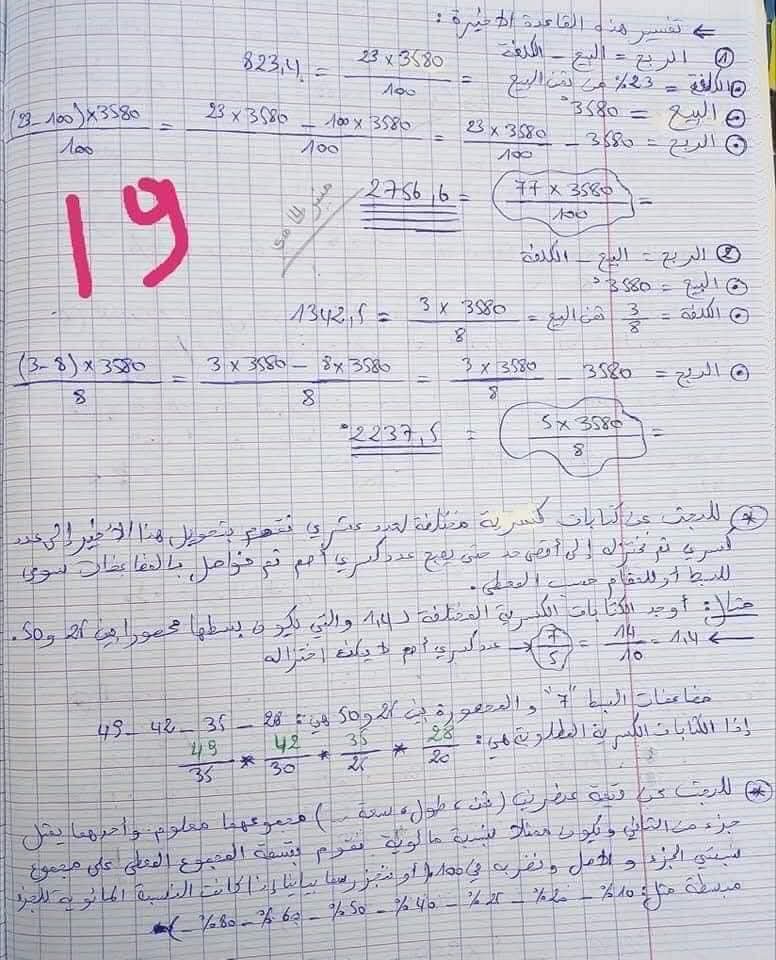 ← تفسير هذه القاعدة الأخيرة :
① الربح = البيع - الكلفة
الكلفة = 23% من ثمن البيع = 23 × 3580 / 100 = 823,4
البيع = 3580د
الربح = 3580 - 23 × 3580 / 100 = 23 × 3580 - 100 × 3580 / 100 = (23 - 100) × 3580 / 100
= 77 × 3580 / 100 = 2756,6
19
② الربح = البيع - الكلفة
البيع = 3580د
الكلفة = 3/8 ثمن البيع = 3 × 3580 / 8 = 1342,5
الربح = 3580 - 3 × 3580 / 8 = 3 × 3580 - 8 × 3580 / 8 = (3 - 8) × 3580 / 8
= 5 × 3580 / 8 = 2237,5د
* للبحث عن كتابات كسرية مختلفة لعدد عشري نقوم بتحويل هذا الأخير إلى عدد
كسري ثم نختزله إلى أقصى حد حتى يصبح عدد كسري أصم ثم نواصل بالمضاعفات سوى
للبسط أو للمقام حسب المعطى.
مثال: أوجد الكتابات الكسرية المختلفة لـ 1,4 والتي يكون بسطها محصورا بين 25 و 50.
← 1,4 = 14/10 = 7/5 ← عدد كسري أصم لا يمكن اختزاله
مضاعفات البسط "7" والمحصورة بين 25 و 50 هي: 28 - 35 - 42 - 49
إذا الكتابات الكسرية المطلوبة هي: 28/20 * 35/25 * 42/30 * 49/35
* للبحث عن قيمة عنصرين (ثمن، طول، سعة ...) مجموعهما معلوم وأحدهما يمثل
جزء من الثاني ويكون ممثلا بنسبة مائوية نقوم بقسمة المجموع المعطى على مجموع
نسبتي الجزء والأصل ونضربه في 100 (أو ننجز رسما بيانيا إذا كانت النسبة المائوية للجزء
مبسطة مثل: 10% - 20% - 25% - 40% - 50% - 60% - 80% - )